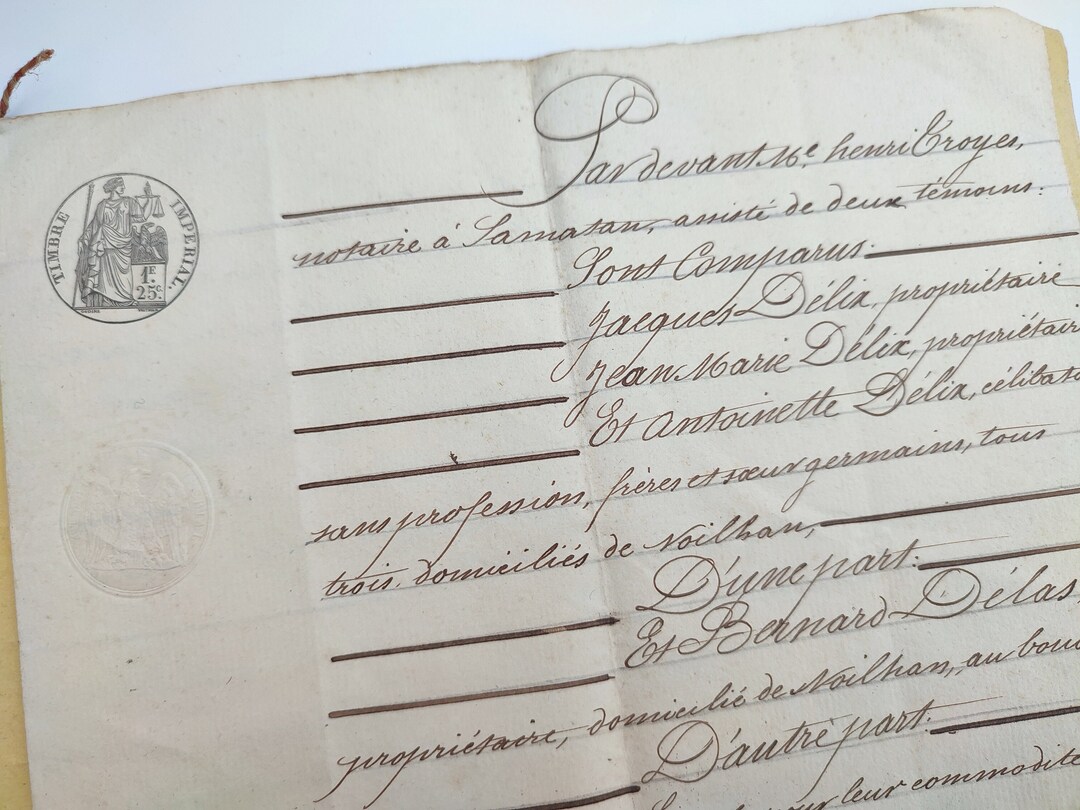 TIMBRE IMPERIAL.
1F.
25c.
Pardevant Me. henri Troyes,
notaire à Samatan, assisté de deux témoins:
Sont Comparus:
Jacques Délix, propriétaire
Jean Marie Délix, propriétair
Et Antoinette Délix, célibata
sans profession, frères et sœur germains, tous
trois domiciliés de Noilhan,
D'une part:
Et Bernard Délas
propriétaire, domicilié de Noilhan, au bour
D'autre part:
leur commodité